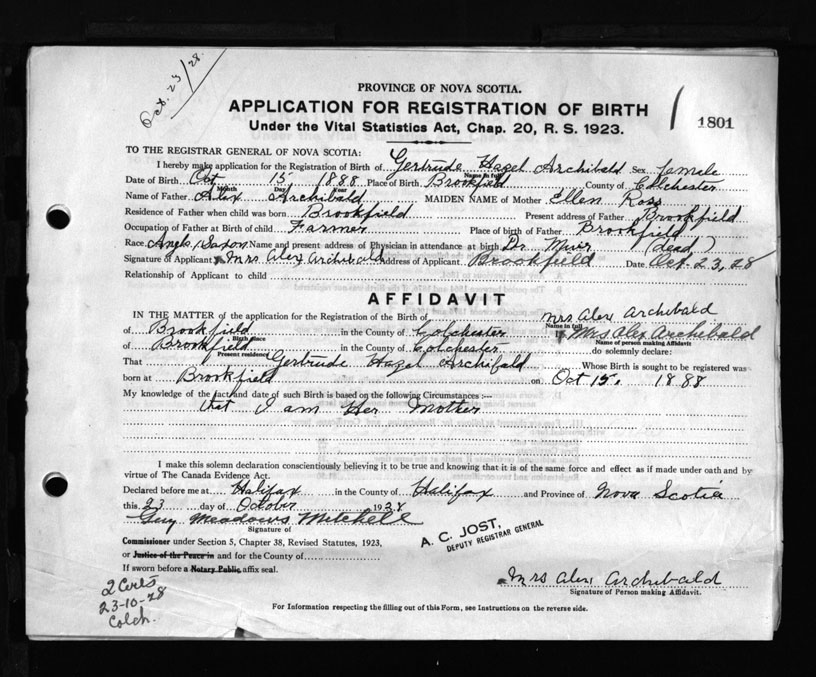 Oct. 23/28.
PROVINCE OF NOVA SCOTIA.
APPLICATION FOR REGISTRATION OF BIRTH
Under the Vital Statistics Act, Chap. 20, R. S. 1923.
1801
TO THE REGISTRAR GENERAL OF NOVA SCOTIA:
I hereby make application for the Registration of Birth of Gertrude Hazel Archibald Sex Female
Name in full
Date of Birth Oct 15 1888 Place of Birth Brookfield County of Colchester
Month Day Year
Name of Father Alex Archibald MAIDEN NAME of Mother Ellen Ross
Residence of Father when child was born Brookfield Present address of Father Brookfield
Occupation of Father at Birth of child Farmer Place of birth of Father Brookfield
Race Anglo Saxon Name and present address of Physician in attendance at birth Dr Muir (dead)
Signature of Applicant Mrs Alex Archibald Address of Applicant Brookfield Date Oct 23, 28
Relationship of Applicant to child
AFFIDAVIT
IN THE MATTER of the application for the Registration of the Birth of Mrs Alex Archibald
Name in full
of Brookfield in the County of Colchester I Mrs Alex Archibald
Birth place Name of person making Affidavit
of Brookfield in the County of Colchester do solemnly declare:
Present residence
That Gertrude Hazel Archibald Whose Birth is sought to be registered was
born at Brookfield on Oct 15, 1888
My knowledge of the fact and date of such Birth is based on the following Circumstances :—
that I am Her Mother
I make this solemn declaration conscientiously believing it to be true and knowing that it is of the same force and effect as if made under oath and by
virtue of The Canada Evidence Act.
Declared before me at Halifax in the County of Halifax and Province of Nova Scotia
this 23 day of October 1928
Guy Meadows Mitchell
Signature of
A. C. JOST,
DEPUTY REGISTRAR GENERAL
Commissioner under Section 5, Chapter 38, Revised Statutes, 1923,
or Justice of the Peace in and for the County of
If sworn before a Notary Public, affix seal.
Mrs Alex Archibald
Signature of Person making Affidavit.
2 Certs
23-10-28
Colch.
For Information respecting the filling out of this Form, see Instructions on the reverse side.